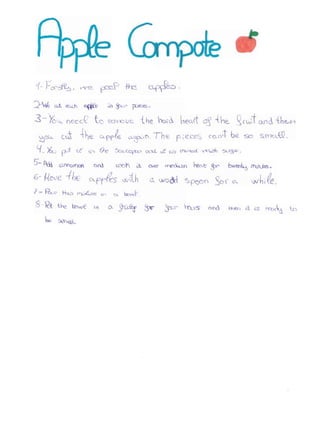 Apple Compote
1- Firstly, we peel the apples.
2- We cut each apple in four pieces.
3- You need to remove the hard heart of the fruit and then
you cut the apple again. The pieces can't be so small.
4. You put it in the saucepan and it is mixed with sugar.
5- Add cinnamon and cook it over medium heat for twenty minutes.
6- Move the apples with a wood spoon for a while.
7- Pour this mixture in a bowl
8- Put the bowl in a fridge for four hours and then it is ready to
be served.